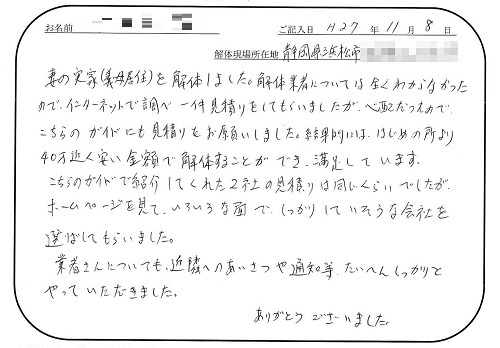 お名前
ご記入日 H27 年 11 月 8 日
解体現場所在地 静岡県浜松市
妻の実家(義母居住)を解体しました。解体業者については全くわからなかった
ので、インターネットで調べ一件見積りをしてもらいましたが、心配だったので、
こちらのガイドにも見積りをお願いしました。結果的には、はじめの所より
40万近く安い金額で解体することができ、満足しています。
こちらのガイドで紹介してくれた2社の見積りは同じくらいでしたが、
ホームページを見て、いろいろな面で、しっかりしていそうな会社を
選ばしてもらいました。
業者さんについても、近隣へのあいさつや通知等、たいへんしっかりと
やっていただきました。
ありがとうございました。